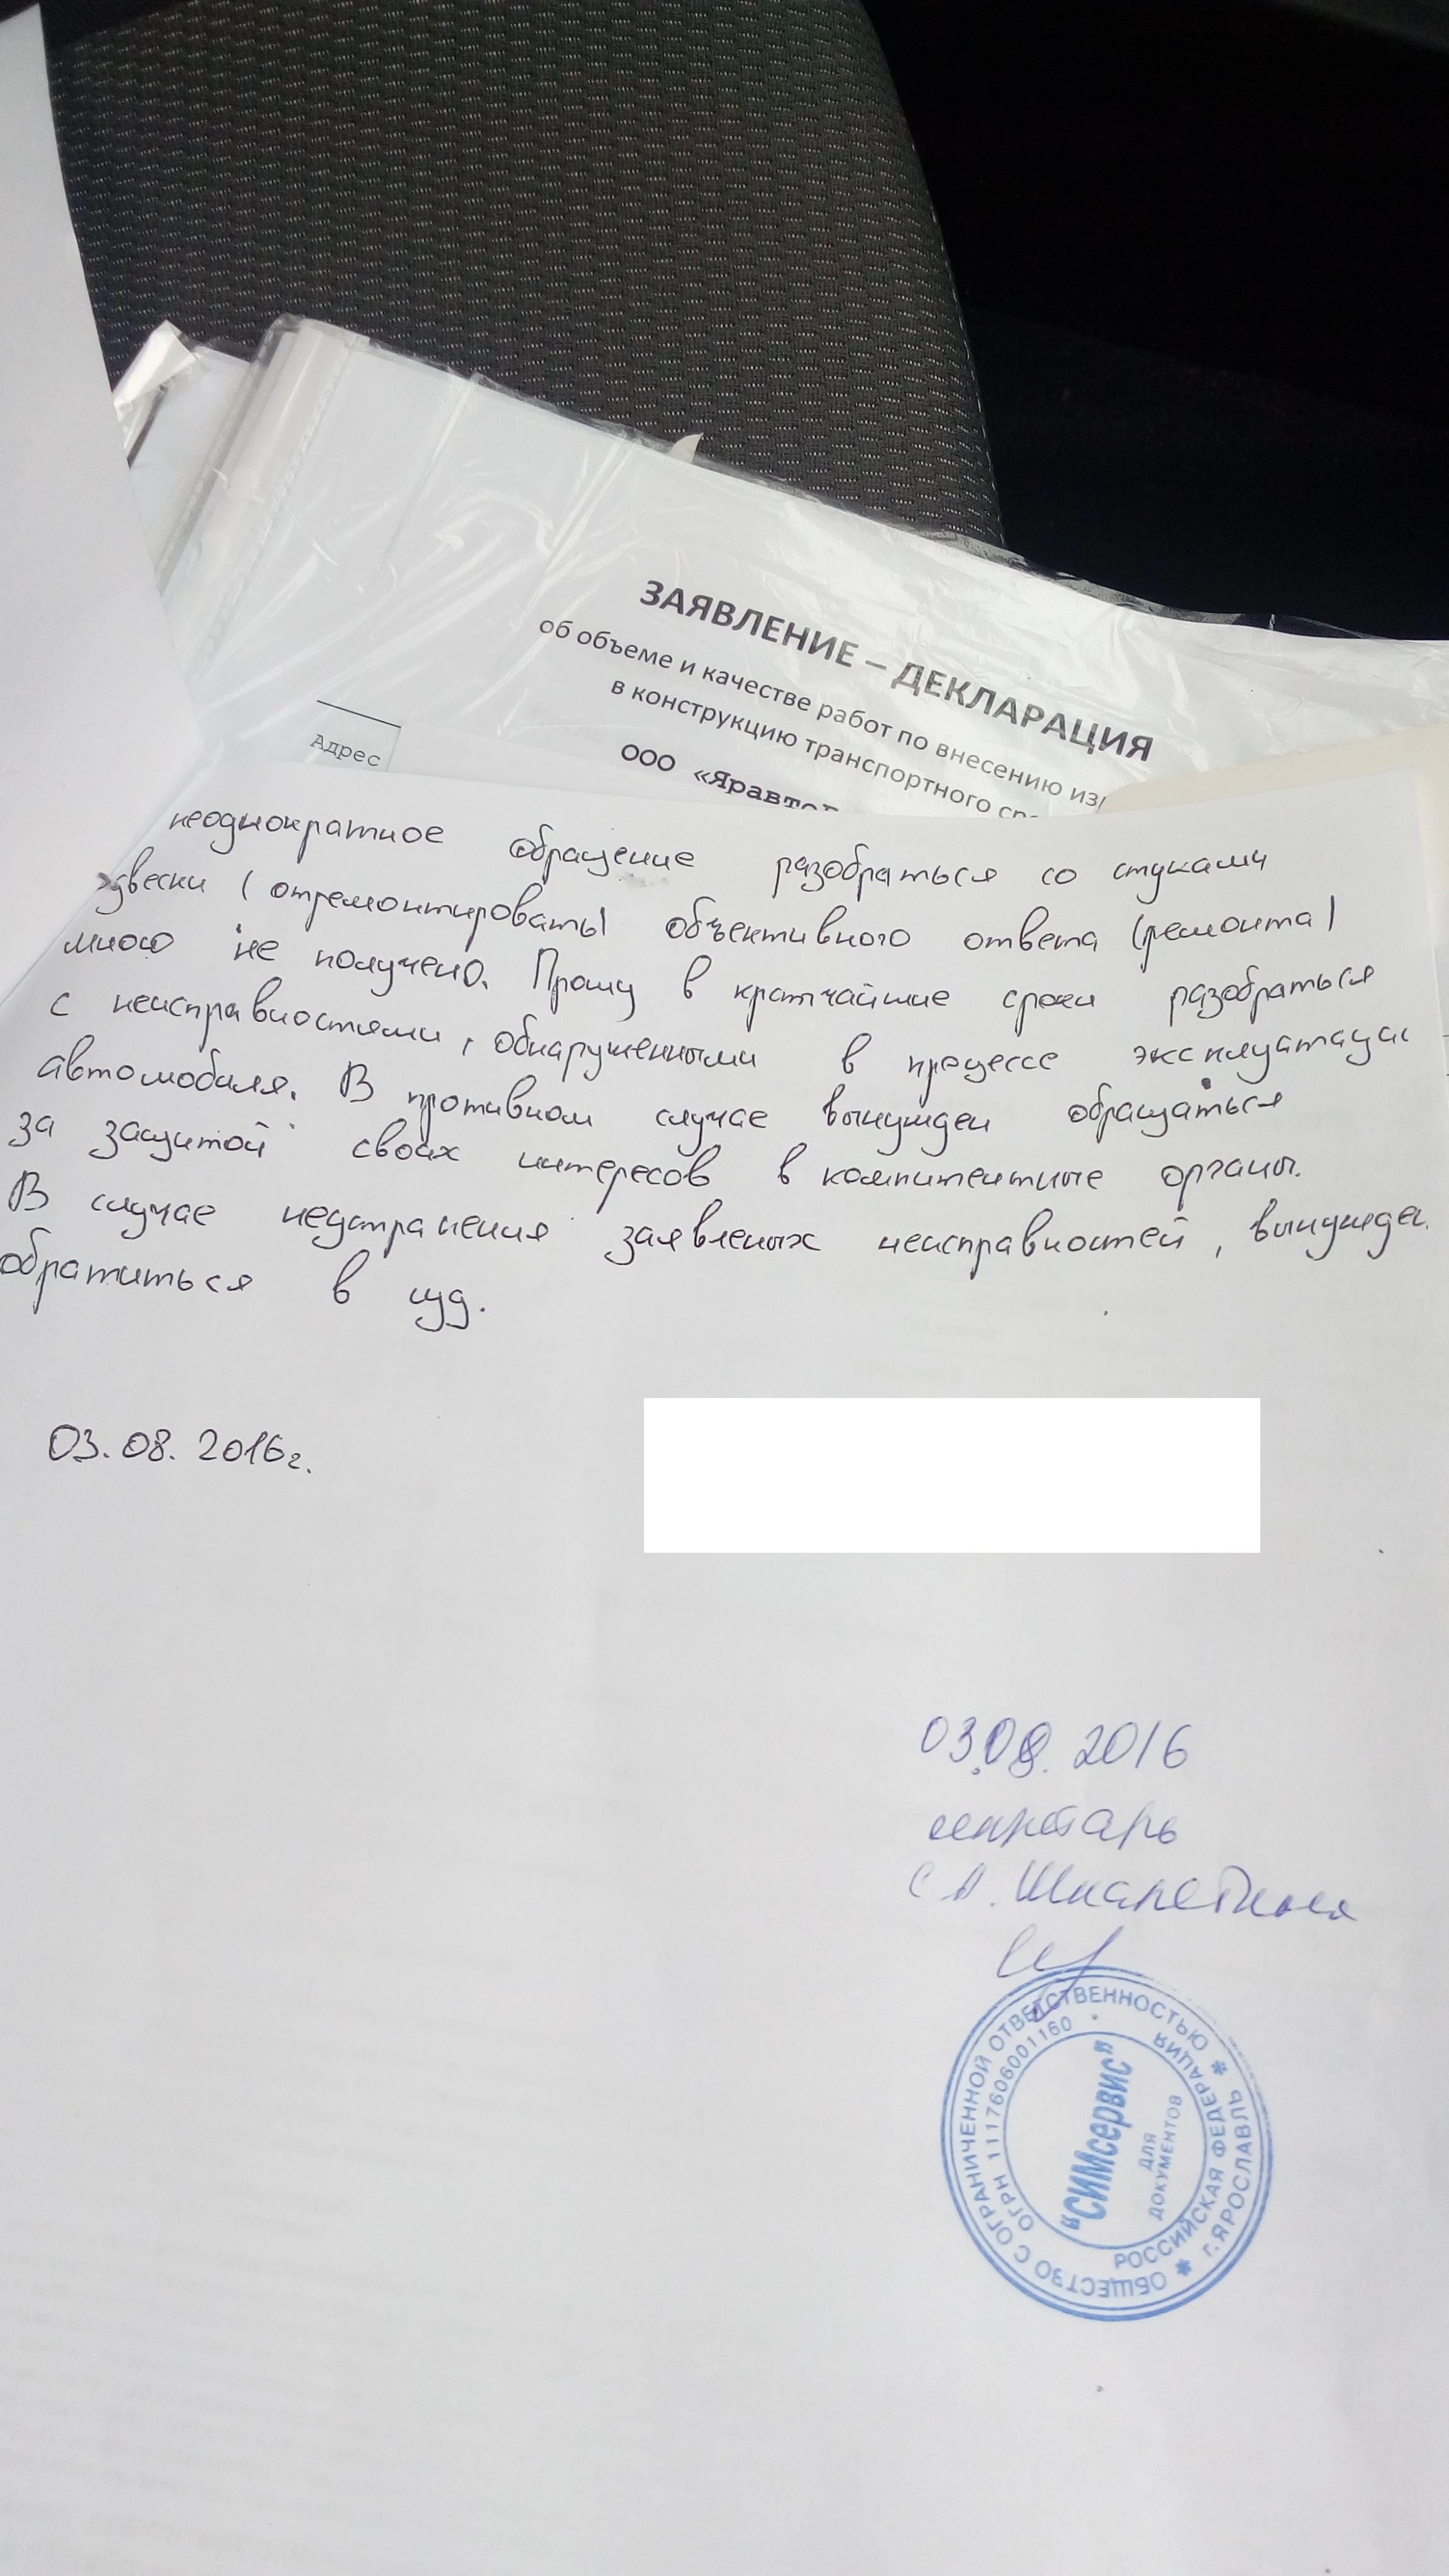 ЗАЯВЛЕНИЕ – ДЕКЛАРАЦИЯ
об объеме и качестве работ по внесению из
в конструкцию транспортного ср
ООО «Яравто
Адрес
неоднократное обращение разобраться со стуками
двески (отремонтировать) объективного ответа (ремонта)
мною не получено. Прошу в кратчайшие сроки разобраться
с неисправностями, обнаруженными в процессе эксплуатации
автомобиля. В противном случае вынужден обращаться
за защитой своих интересов в компитентные органы.
В случае неустранения заявленых неисправностей, вынужден
обратиться в суд.
03.08.2016г.
03.08.2016
секретарь
С.А.
ОБЩЕСТВО С ОГРАНИЧЕННОЙ ОТВЕТСТВЕННОСТЬЮ
г.ЯРОСЛАВЛЬ
ОГРН 1117606001160
РОССИЙСКАЯ ФЕДЕРАЦИЯ
"СИМсервис"
ДЛЯ
ДОКУМЕНТОВ